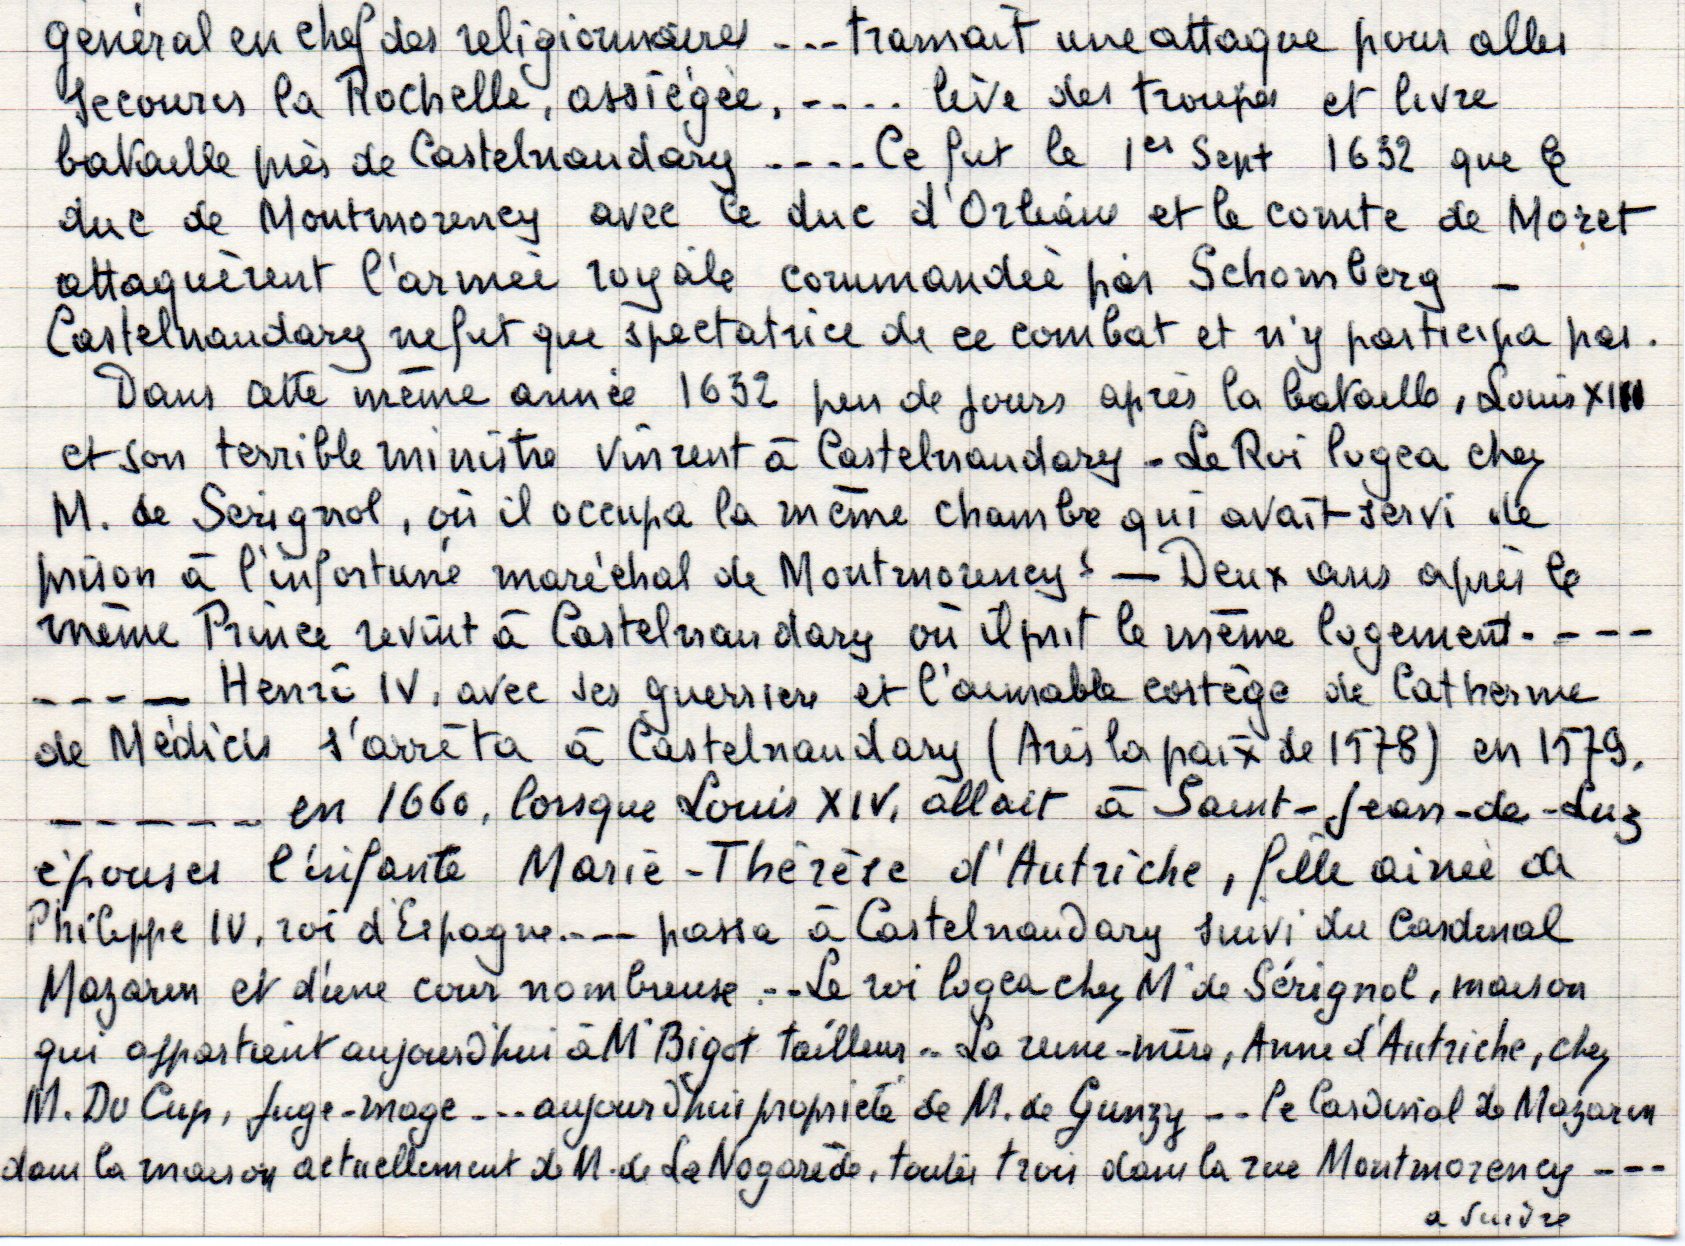 général en chef des religionnaires ---tramait une attaque pour aller
secourir la Rochelle, assiégée, ---- lève des troupes et livre
bataille près de Castelnaudary ----Ce fut le 1er Sept 1632 que le
duc de Montmorency avec le duc d'Orléans et le comte de Moret
attaquèrent l'armée royale commandée par Schomberg -
Castelnaudary ne fut que spectatrice de ce combat et n'y participa pas.
Dans cette même année 1632 peu de jours après la bataille, Louis XIII
et son terrible ministre vinrent à Castelnaudary - Le Roi logea chez
M. de Serignol, où il occupa la même chambre qui avait servi de
prison à l'infortuné maréchal de Montmorency! — Deux ans après le
même Prince revint à Castelnaudary où il prit le même logement. ----
----- Henri IV, avec ses guerriers et l'aimable cortège de Catherine
de Médicis s'arrêta à Castelnaudary (Arès la paix de 1578) en 1579.
------ en 1660, lorsque Louis XIV, allait à Saint-Jean-de-Luz
épouser l'infante Marie-Thérèse d'Autriche, fille ainée de
Philippe IV, roi d'Espagne.--- passa à Castelnaudary suivi du Cardinal
Mazarin et d'une cour nombreuse.--Le roi logea chez M de Sérignol, maison
qui appartient aujourd'hui à M Bigot tailleur -- La reine-mère, Anne d'Autriche, chez
M. Du Cup, Juge-mage ---aujourd'hui propriété de M. de Gunzy -- le Cardinal de Mazarin
dans la maison actuellement de M. de La Nogarède, toutes trois dans la rue Montmorency ---
a suivre